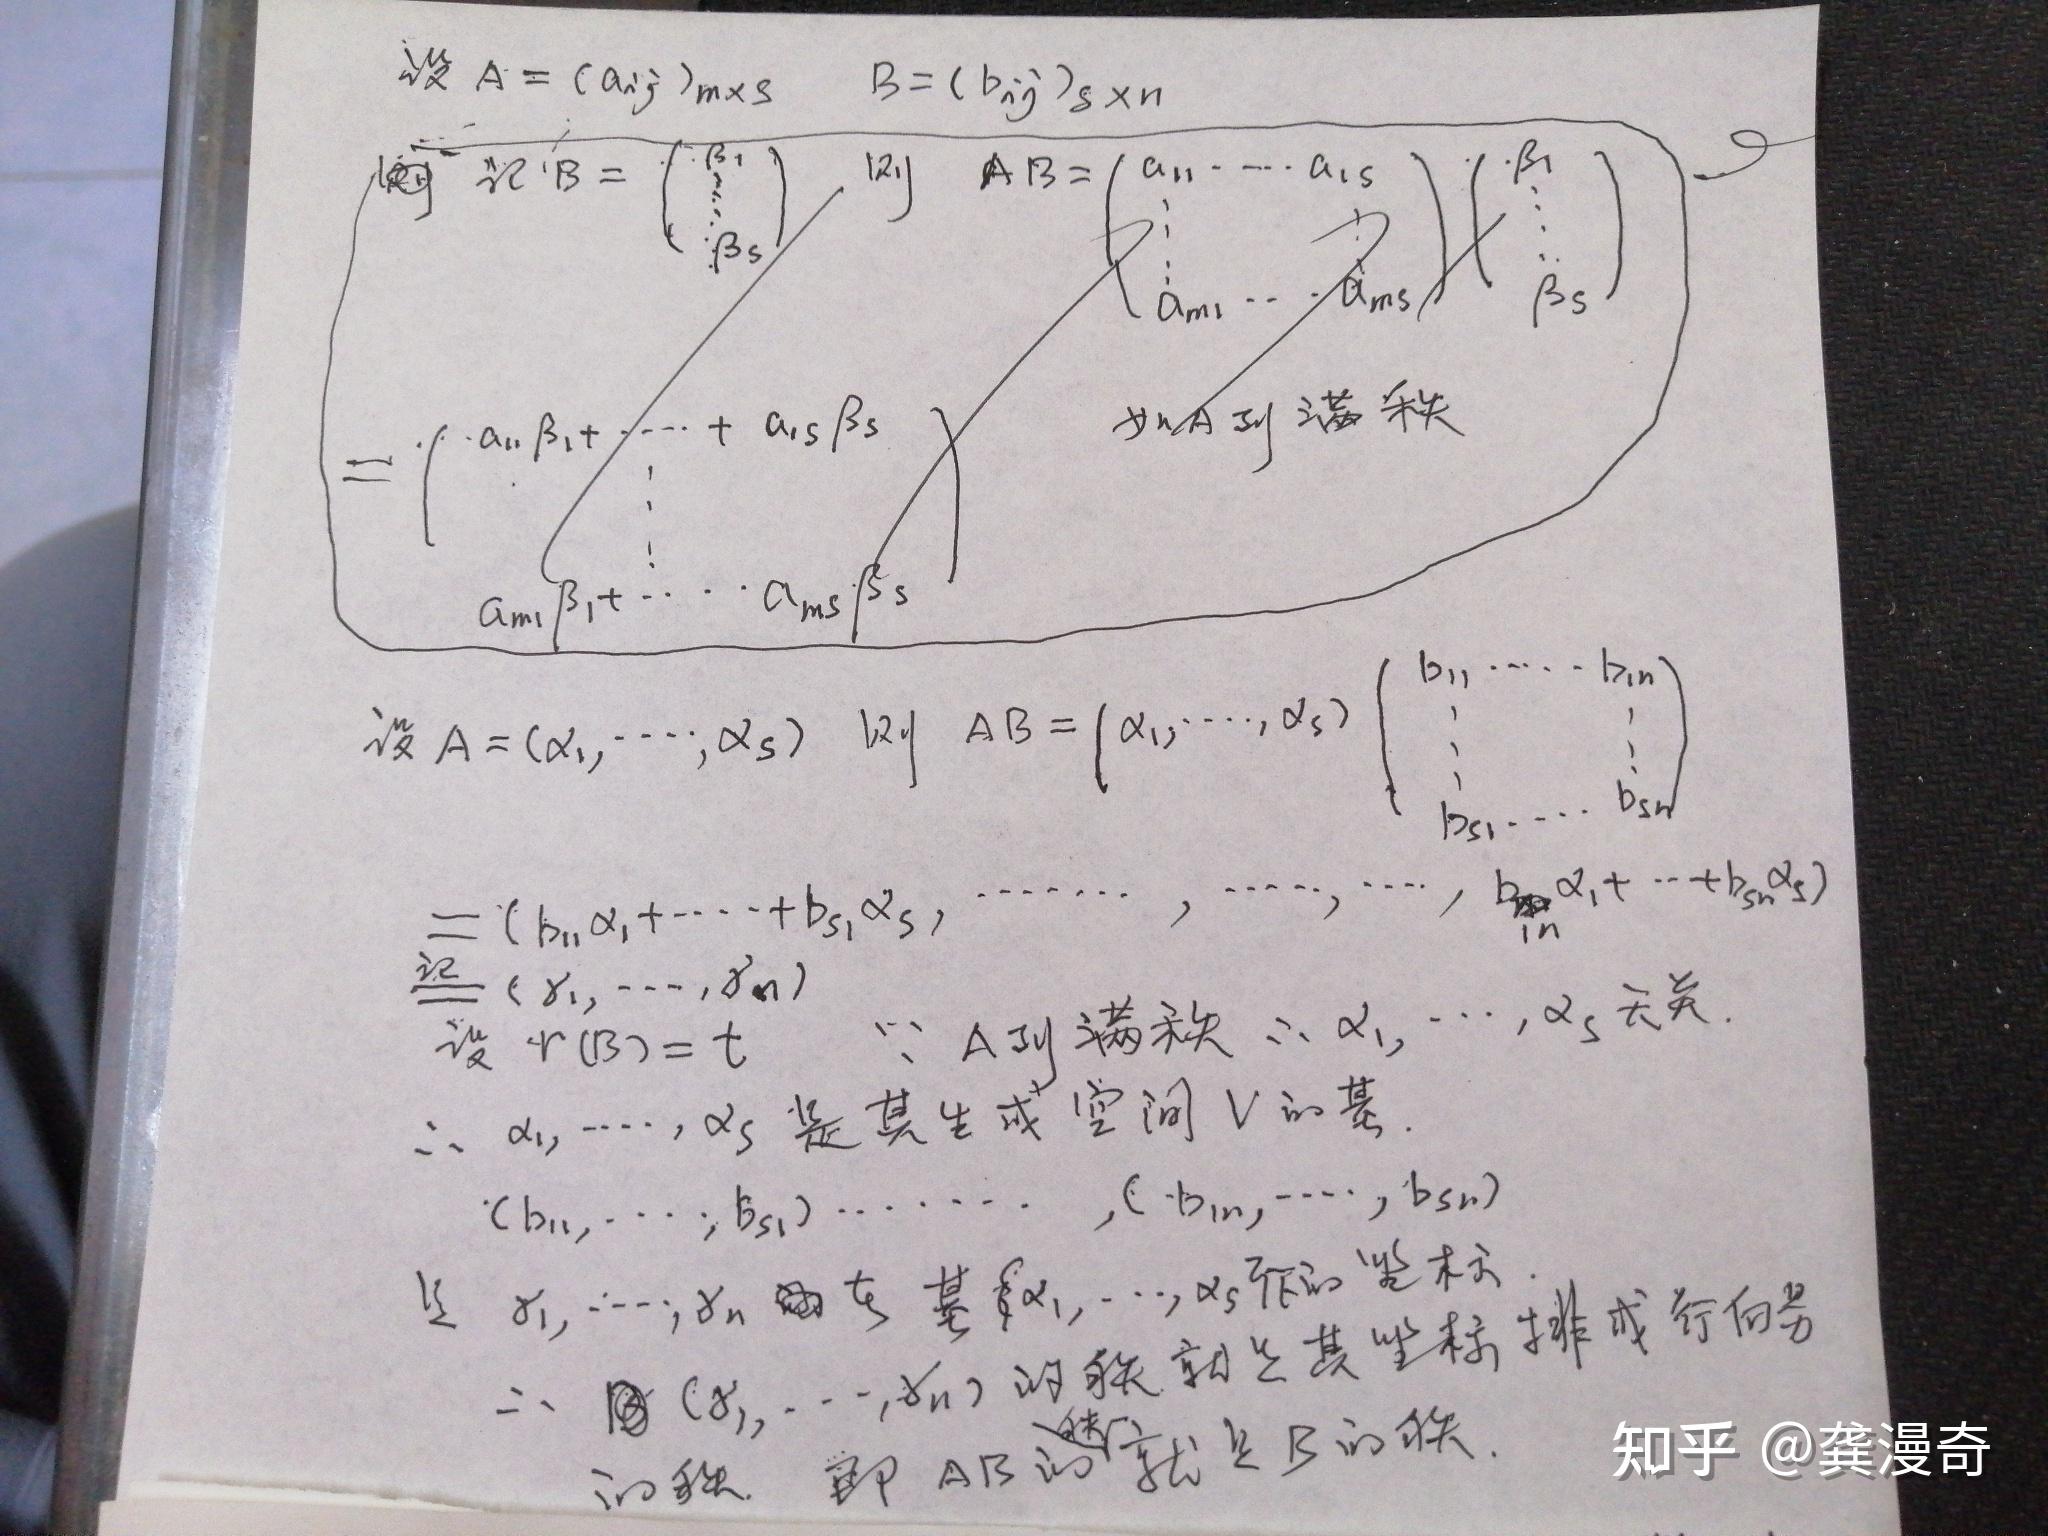 设 A = (aij)m×s B = (bij)s×n
记 B = (β1 ⋮ βs) 则 AB = (a11 ···· a1s ⋮ ⋮ am1 ··· ams) (β1 ⋮ βs)
= (a11β1 + ···· + a1sβs ⋮ am1β1 + ···· amsβs) 如A列满秩
设 A = (α1, ····, αs) 则 AB = (α1, ····, αs) (b11 ····· b1n ⋮ ⋮ bs1 ····· bsn)
= (b11α1 + ···· + bs1αs, ········, ·····, ····, b1nα1 + ··· + bsnαs)
记= (γ1, ····, γn)
设 r(B) = t ∵ A列满秩 ∴ α1, ···, αs 无关.
∴ α1, ····, αs 是其生成空间 V 的基.
(b11, ····, bs1) ········, (b1n, ····, bsn)
是 γ1, ····, γn 在基 α1, ···, αs 下的坐标.
∴ (γ1, ···, γn) 的秩就是其坐标排成行向
的秩. 即 AB 的秩就是 B 的秩.
知乎 @龚漫奇